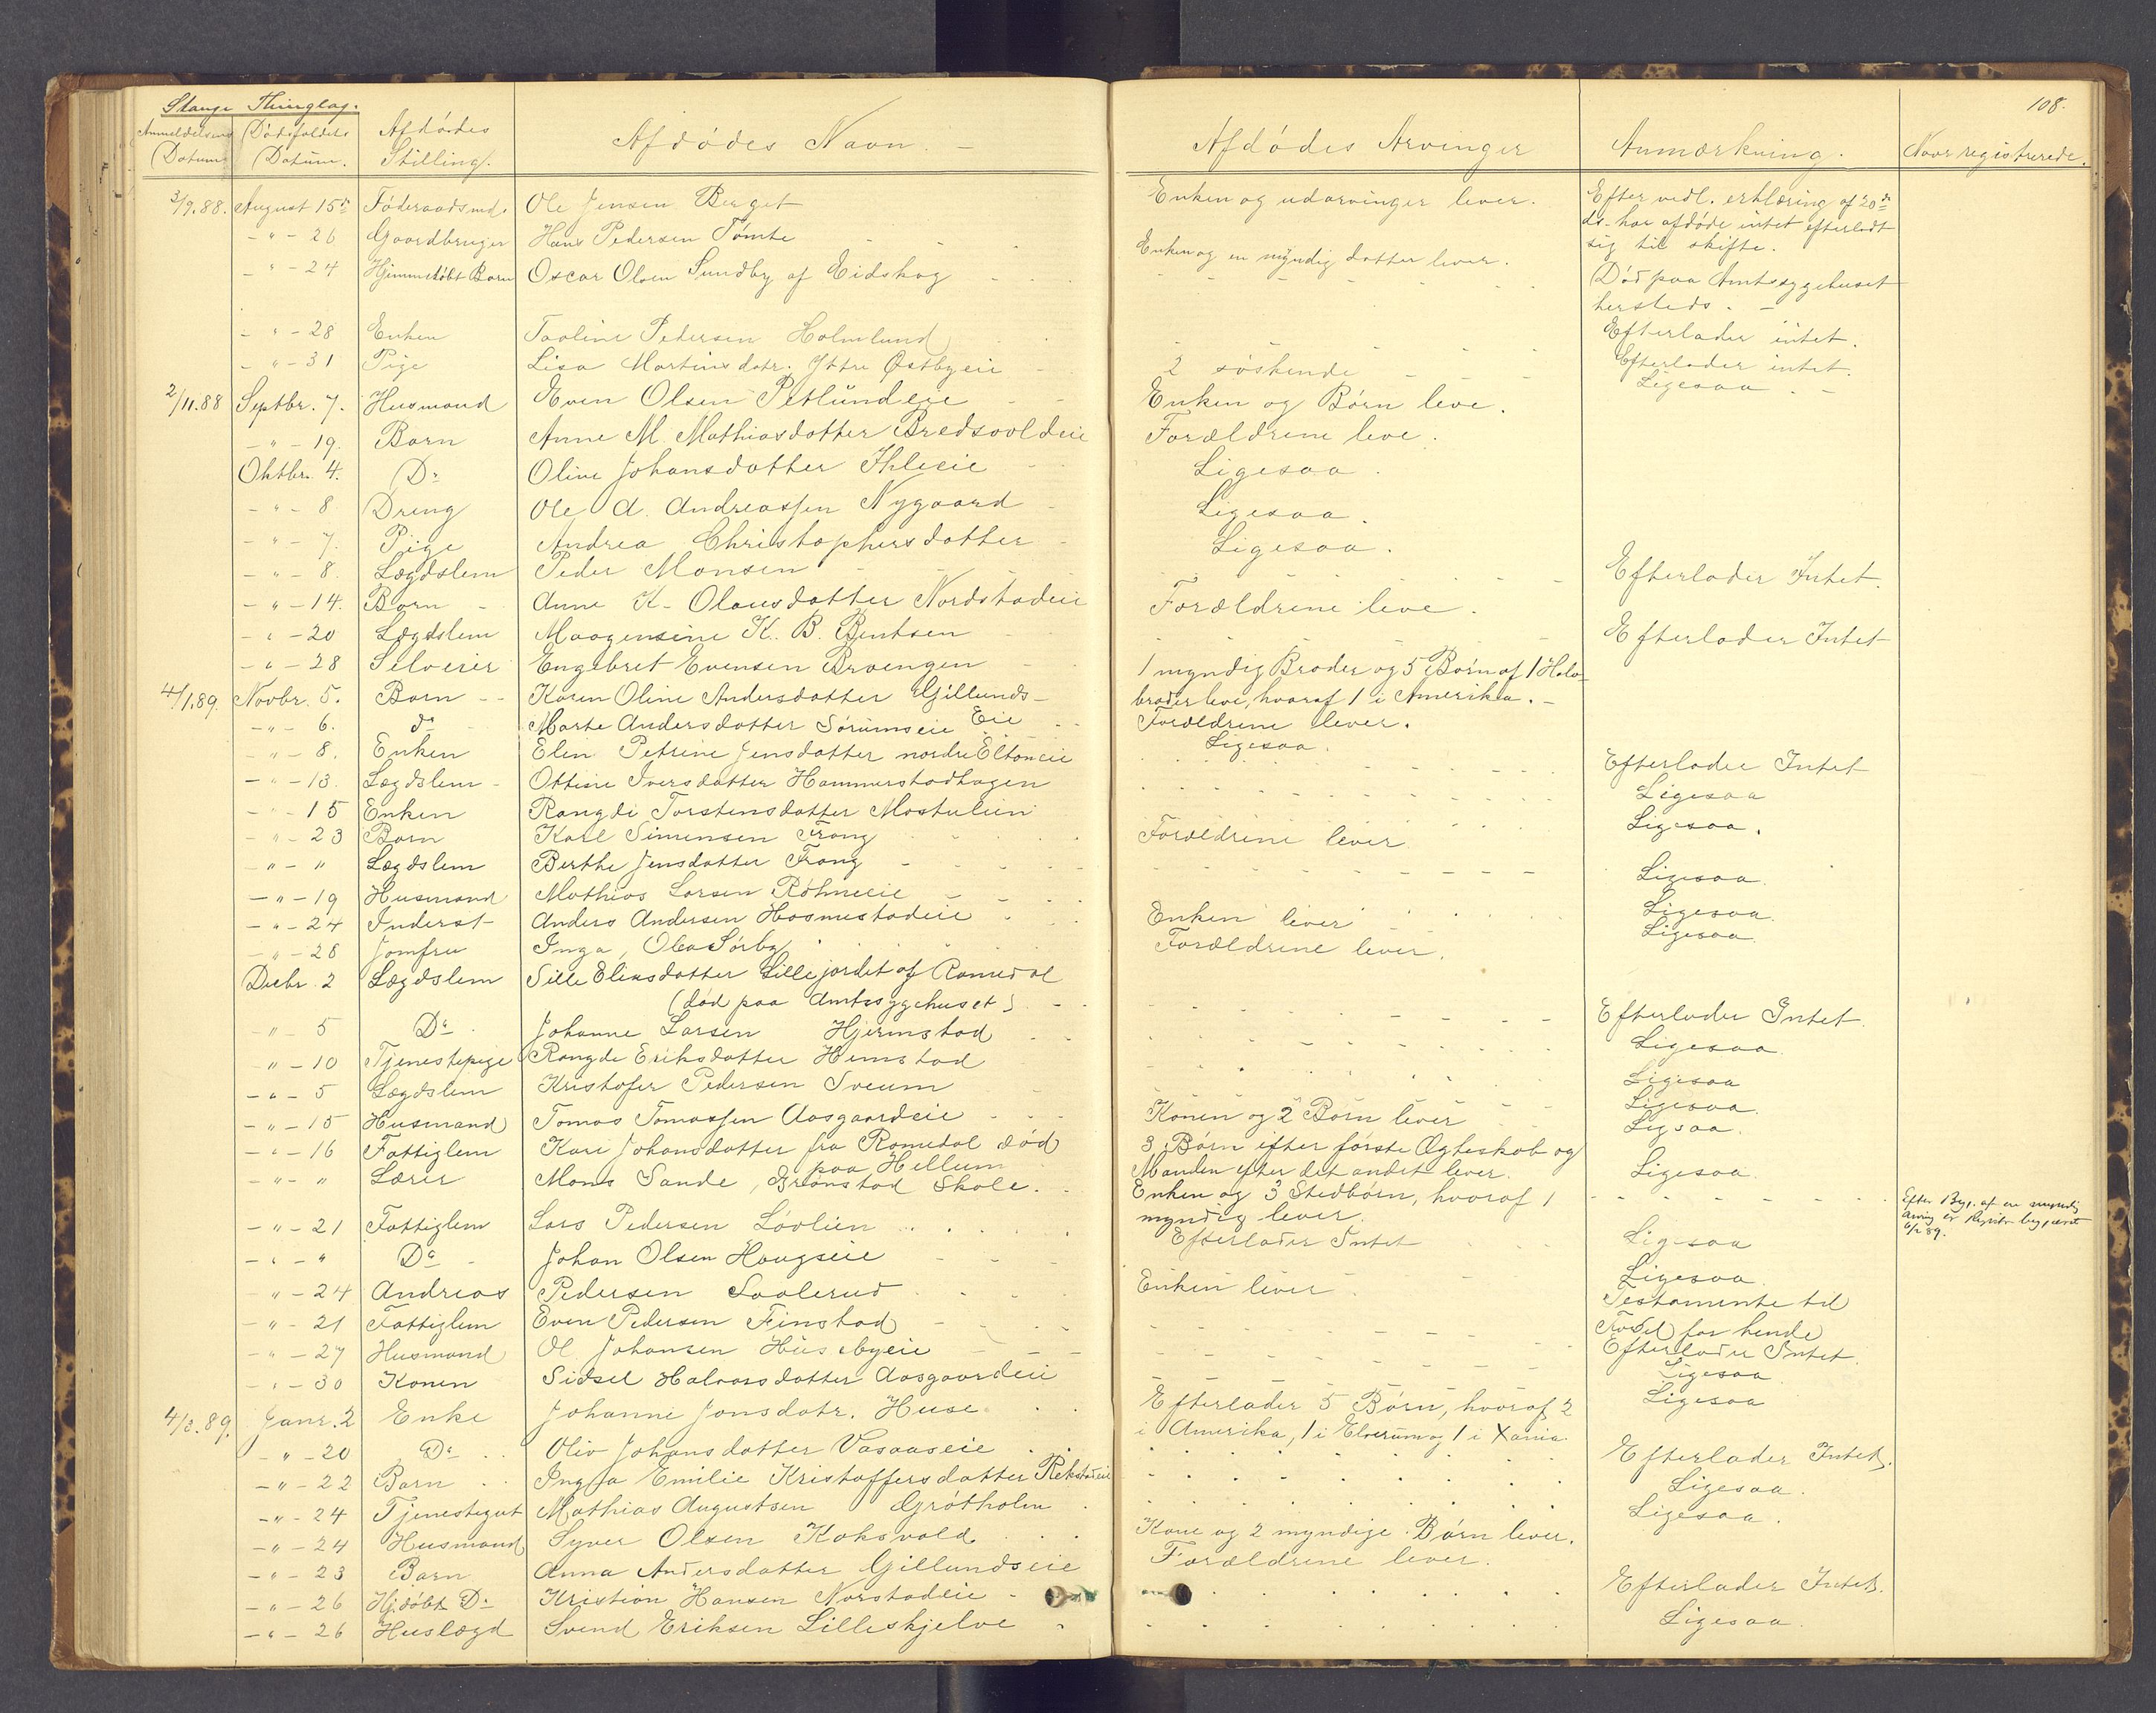 108.
Stange Thinglag.
Anmeldelsens Datum. Dødsfaldets Datum. Afdødes Stilling. Afdødes Navn. Afdødes Arvinger Anmærkning. Naar registrerede.
3/9.88. August 15de Føderaadsmd. Ole Jensen Berget Enken og udarvinger lever. Efter vedl. erklæring af 20de
ds. har afdøde intet efterladt
sig til skifte.
- " - 26 Gaardbruger Hans Pedersen Tømte Enken og en myndig datter lever.
- " - 24 Hjemmedøbt Barn Oscar Olsen Sundby af Eidskog Død paa Amtssygehuset
hersteds.
- " - 28 Enken Taaline Pedersen Holmlund Efterlader intet.
- " - 31 Pige Lisa Martinsdatr. Yttre Østbyeie 2 søskende Efterlader intet.
Ligesaa
2/11.88 Septbr. 7. Husmand Even Olsen Petlundeie Enken og Børn leve.
- " - 19. Barn Anne M. Mathiasdatter Bredsvoldeie Forældrene leve.
Oktbr. 4. Do Oline Johansdatter Ihleeie Ligesaa.
- " - 8 Dreng Ole A. Andreassen Nygaard Ligesaa.
- " - 7. Pige Andrea Christophersdatter Ligesaa.
- " - 8. Lægdslem Peder Monsen Efterlader Intet.
- " - 14. Barn Anne K. Olausdatter Nordstadeie Forældrene leve.
- " - 20 Lægdslem Maagensine K. B. Bentsen Efterlader Intet
- " - 28 Selveier Engebret Evensen Brvengen 1 myndig Broder og 5 Børn af 1 Halv-
broder leve, hvoraf 1 i Amerika.
4/1.89. Novbr. 5. Barn Karen Oline Andersdatter Gillunds-
Eie Forældrene lever.
- " - 6. do Marte Andersdatter Sørumseie Ligesaa.
- " - 8. Enken Elen Petrine Jensdatter nordre Eltoneie Efterlader Intet
- " - 13. Lægdslem Ottine Iversdatter Hammerstadhagen Ligesaa
- " - 15 Enken Rangdi Torstensdatter Mostulien Ligesaa.
- " - 23 Barn Karl Simensen Frang Forældrene lever.
- " - " Lægdslem Berthe Jensdatter Frang Ligesaa.
- " - 19 Husmand Mathias Larsen Røhneeie Ligesaa.
- " - 24 Inderst Anders Andersen Hosmestadeie Enken lever Ligesaa.
- " - 28 Jomfru Inga, Olea Sørby Forældrene lever.
Decbr. 2 Lægdslem Sille Eliasdatter Lillejordet af Romedal
(død paa Amtssygehuset) Efterlader Intet.
" - 5 Do Johanne Larsen Hjermstad Ligesaa.
- " - 10 Tjenestepige Rangdi Eriksdatter Hemstad Ligesaa
- " - 5 Lægdslem Kristofer Pedersen Sveum Ligesaa.
- " - 15 Husmand Tomas Tomassen Aasgaardeie Konen og 2 Børn lever Ligsaa.
- " - 16 Fattiglem Kari Johansdatter fra Romedal død
paa Hellum 3 Børn efter første Ægteskab og
Manden efter det andet lever. Ligesaa.
- " - " Lærer Mons Sande, Grønstad Skole. Enken og 3 Stedbørn, hvoraf 1
myndig lever. Efter Beg. af en myndig
Arving er Registr. begjæret
6/2 89.
- " - 21 Fattiglem Lars Pedersen Løvlien Efterlader Intet Ligesaa
- " - " Do Johan Olsen Haugseie Ligesaa.
" - 24 Andreas Pedersen Saalerud Enken lever Testamente til
Fordel for hende
- " - 21 Fattiglem Even Pedersen Finstad Efterlader Intet.
- " - 27 Husmand Ol. Johansen Husebyeie Ligesaa.
- " - 30 Konen Sidsel Halvorsdatter Aasgaardeie Ligesaa
4/3.89. Janr. 2 Enke Johanne Jonsdatr. Huse Efterlader 5 Børn, hvoraf 2
i Amerika, 1 i Elverum og 1 i Xania.
- " - 20 Do Oliv Johansdatter Vasaaseie Efterlader Intet.
- " - 22 Barn Inga Emilie Kristoffersdatter Rekstadeie Ligesaa.
- " - 24 Tjenestegut Mathias Augustsen Grøtholm Ligesaa.
- " - 24 Husmand Syver Olsen Koksvold Kone og 2 myndige Børn lever.
- " - 23 Barn Anna Andersdatter Gillundseie Forældrene lever.
- " - 26 Hjdøbt Do Kristian Hansen Norstadeie Efterlader Intet.
- " - 26 Huslægd Svend Eriksen Lilleskjelve Ligesaa.